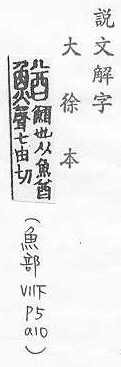 說文解字
大徐本
鰌 鰼也从魚酋
聲七由切
（魚部
VII下
P5
a10）